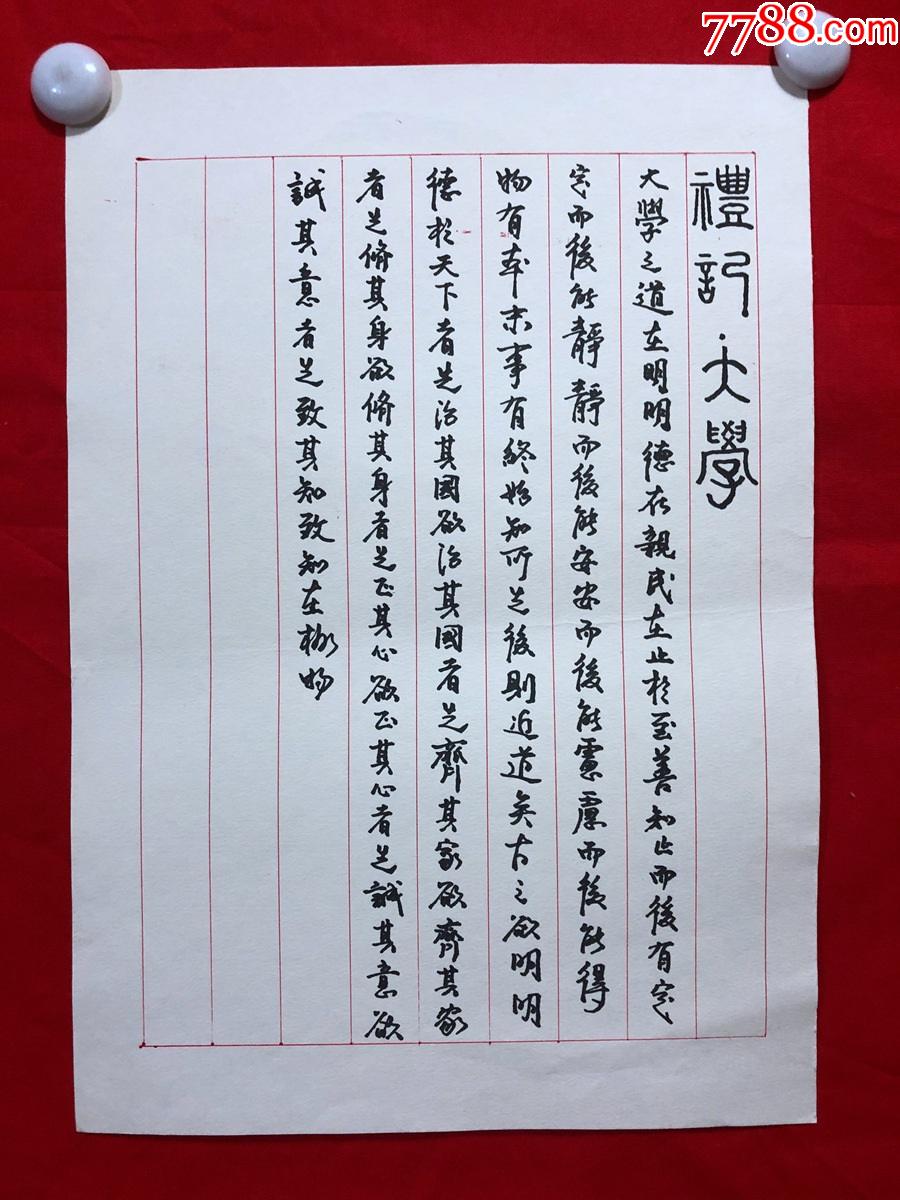 7788.com
禮記·大學
大學之道在明明德在親民在止於至善知止而後有定
定而後能靜靜而後能安安而後能慮慮而後能得
物有本末事有終始知所先後則近道矣古之欲明明
德於天下者先治其國欲治其國者先齊其家欲齊其家
者先脩其身欲脩其身者先正其心欲正其心者先誠其意欲
誠其意者先致其知致知在格物